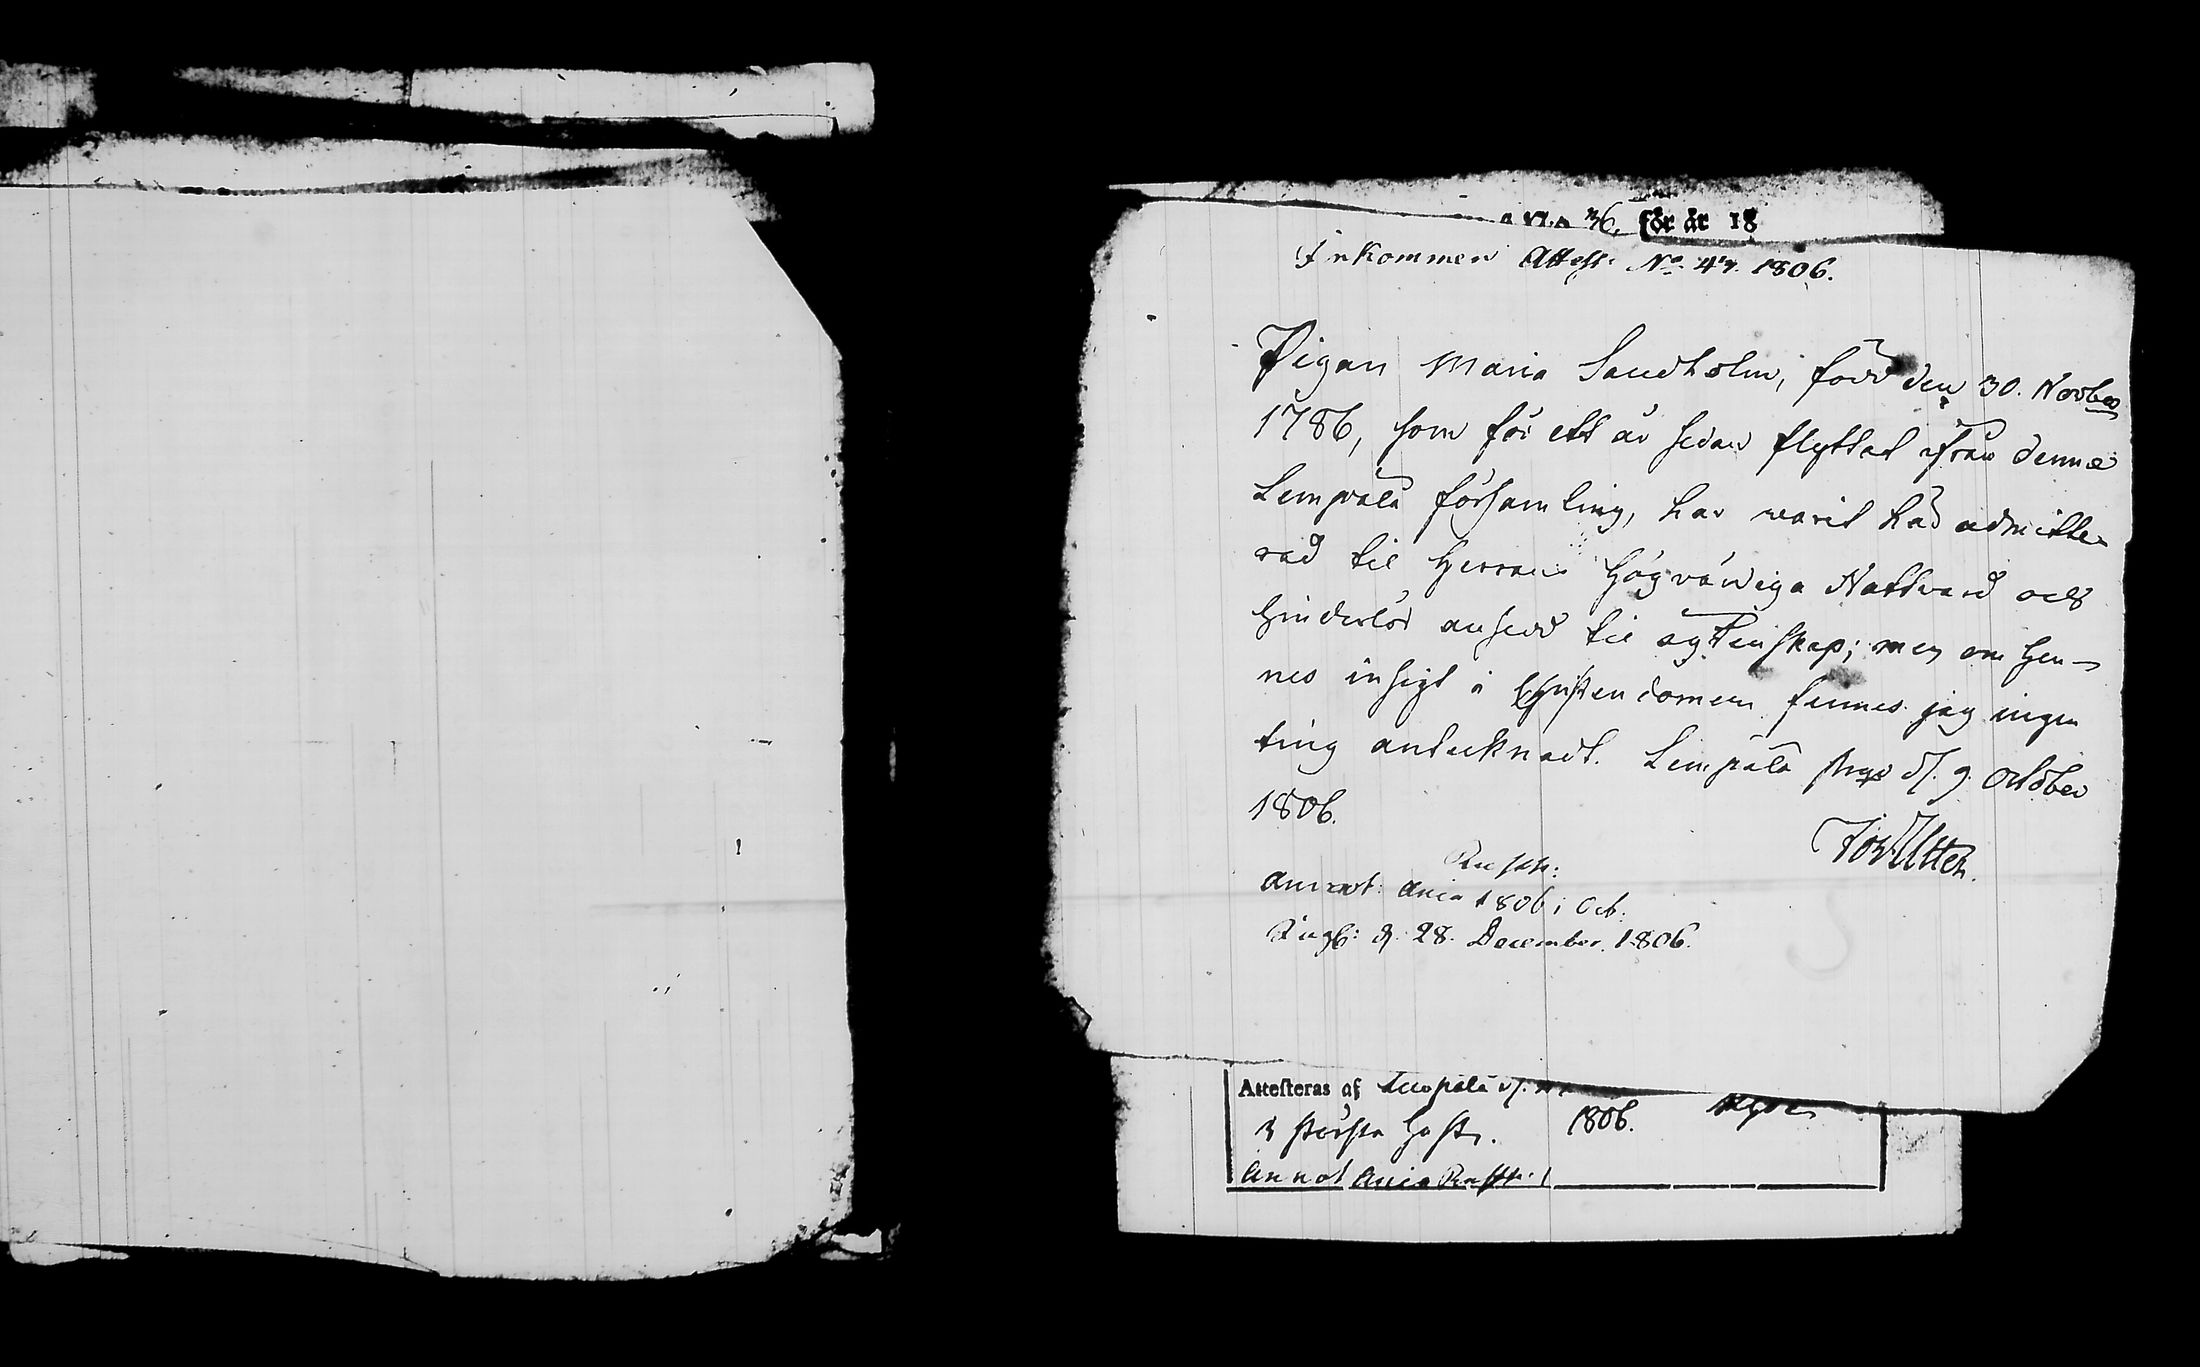 No 36. för år 18
Inkommen Attest. No. 47. 1806.
Pigan Maria Sandholm, född den 30. Novber
1786, som för ett år sedan flyttat ifrån denne
Lempälä församling, har warit här admitte-
rad til Herrans Högvärdiga Nattvard och
hinderlös ansedd til ägtenskap; men om hen-
nes insigt i Christendomen finnes jag ingen
ting antecknadt. Lempälä d. 9. October
1806.
Annot: Ania 1806 i Oct.
d. 28. December. 1806.
Attesteras af Lempälä d.
1806.
Annot Ania